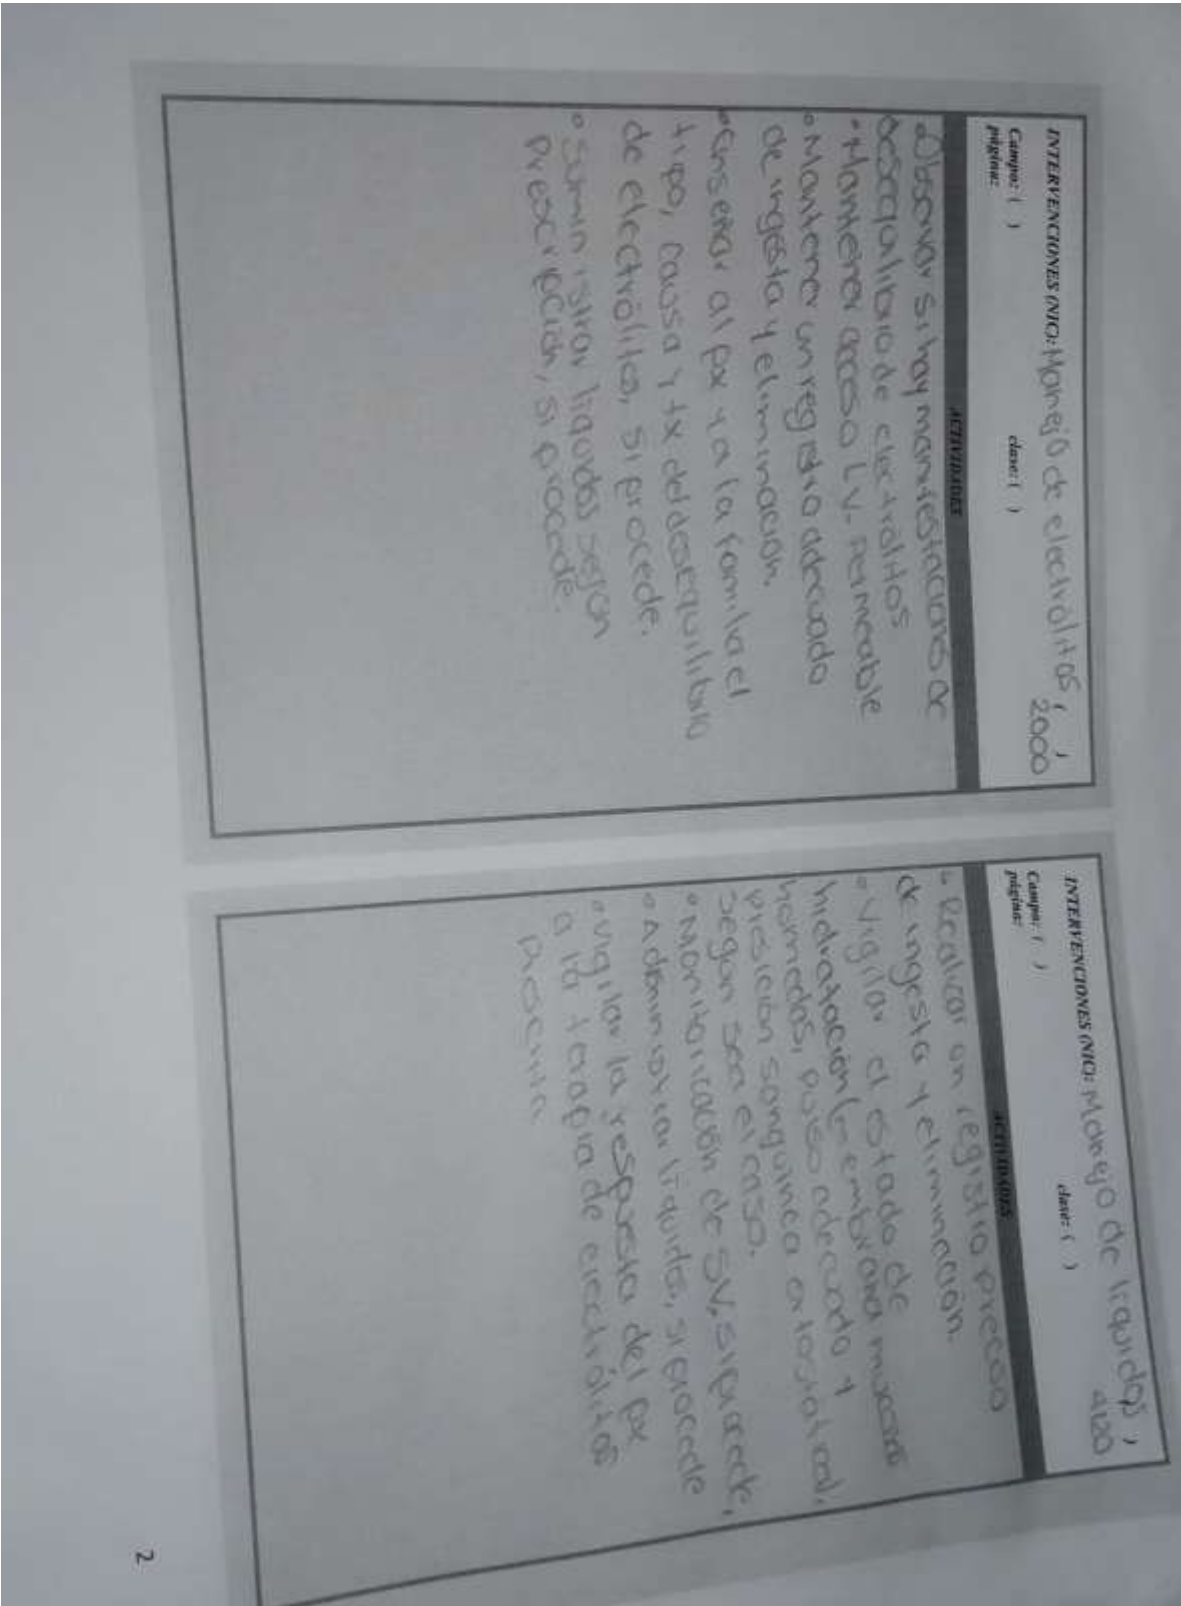 INTERVENCIONES (NIC): Manejo de electrólitos ( )
2000
Campo: ( ) clase: ( )
página:
ACTIVIDADES
Observar si hay manifestaciones de
desequilibrio de electrolitos
• Mantener acceso I.V. permeable
• Mantener un registro adecuado
de ingesta y eliminación.
• enseñar al px y a la familia el
tipo, causa y tx del desequilibrio
de electrólitos, si procede.
• Suministrar liquidos según
Prescripción, si procede.
INTERVENCIONES (NIC): Manejo de liquidos )
4120
Campo: ( ) clase: ( )
página:
ACTIVIDADES
• Realizar un registro preciso
de ingesta y eliminación.
• Vigilar el estado de
hidratación (membrana mucosas
húmedas, pulso adecuado y
presición sanguínea ortostatica),
según sea el caso.
• Monitorización de SV, si procede.
• Administrar líquidos, si procede
• Vigilar la respuesta del px
a la terapia de electrólitos
Prescrita.
2